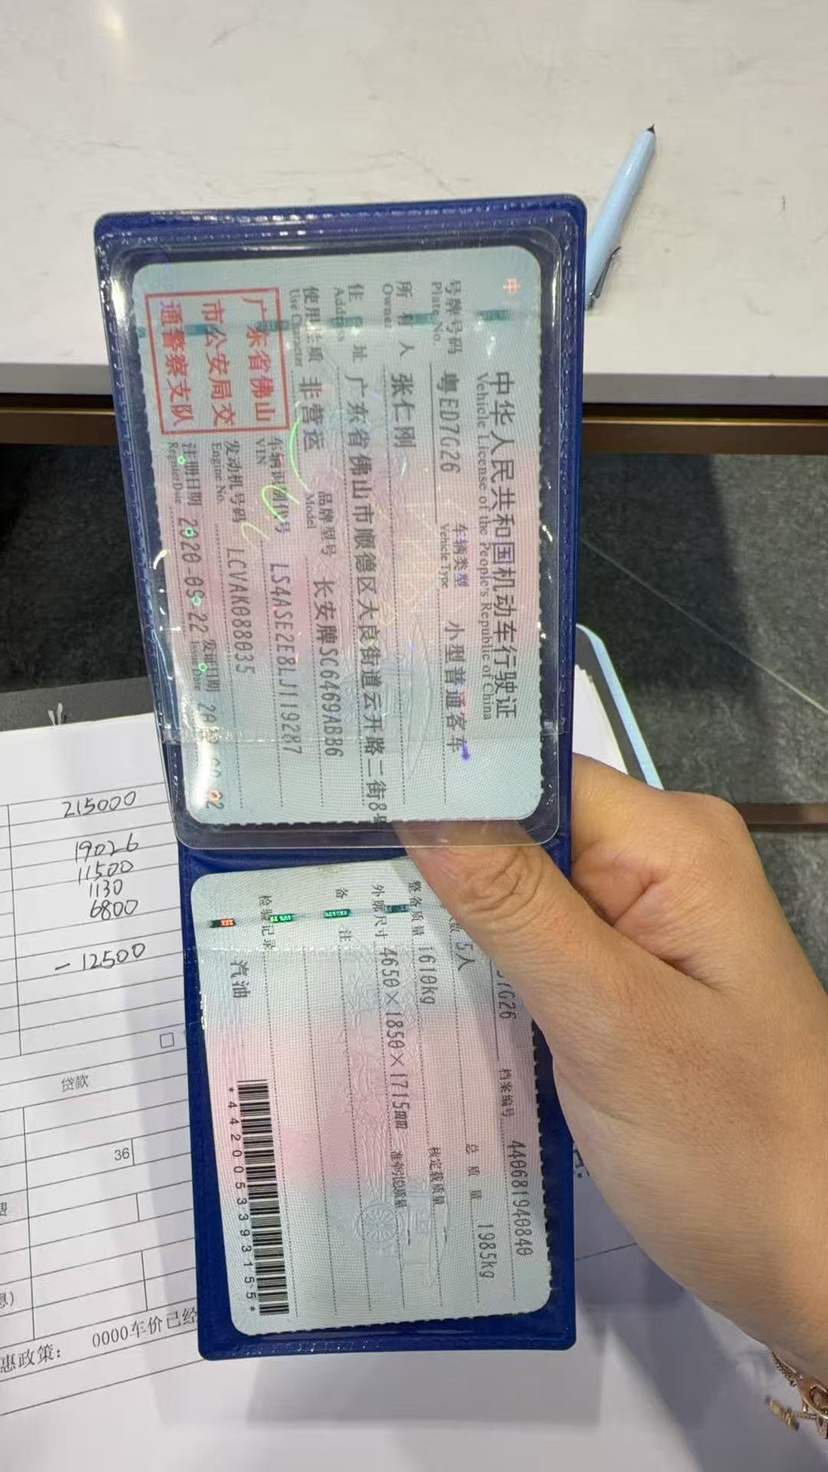 中华人民共和国机动车行驶证
Vehicle License of the People's Republic of China
号牌号码 粤ED7G26 车辆类型 小型普通客车
Plate No. Vehicle Type
所有人 张仁刚
Owner
住址 广东省佛山市顺德区大良街道云开路二街8号
Address
使用性质 非营运 品牌型号 长安牌SC6469ABB6
Use Character Model
广东省佛山
市公安局交
通警察支队
车辆识别代号 LS4ASE2E8LJ119287
VIN
发动机号码 LCVAK088035
Engine No.
注册日期 2020-09-22 发证日期
Register Date Issue Date
7G26 档案编号 440681940840
5人 总质量 1985kg
整备质量 1610kg 核定载质量 --
外廓尺寸 4650×1850×1715mm 准牵引总质量 --
备注
检验记录
汽油
*4420053393155*
215000
19026
11500
1130
6800
-12500
贷款
36
惠政策: 0000车价已经